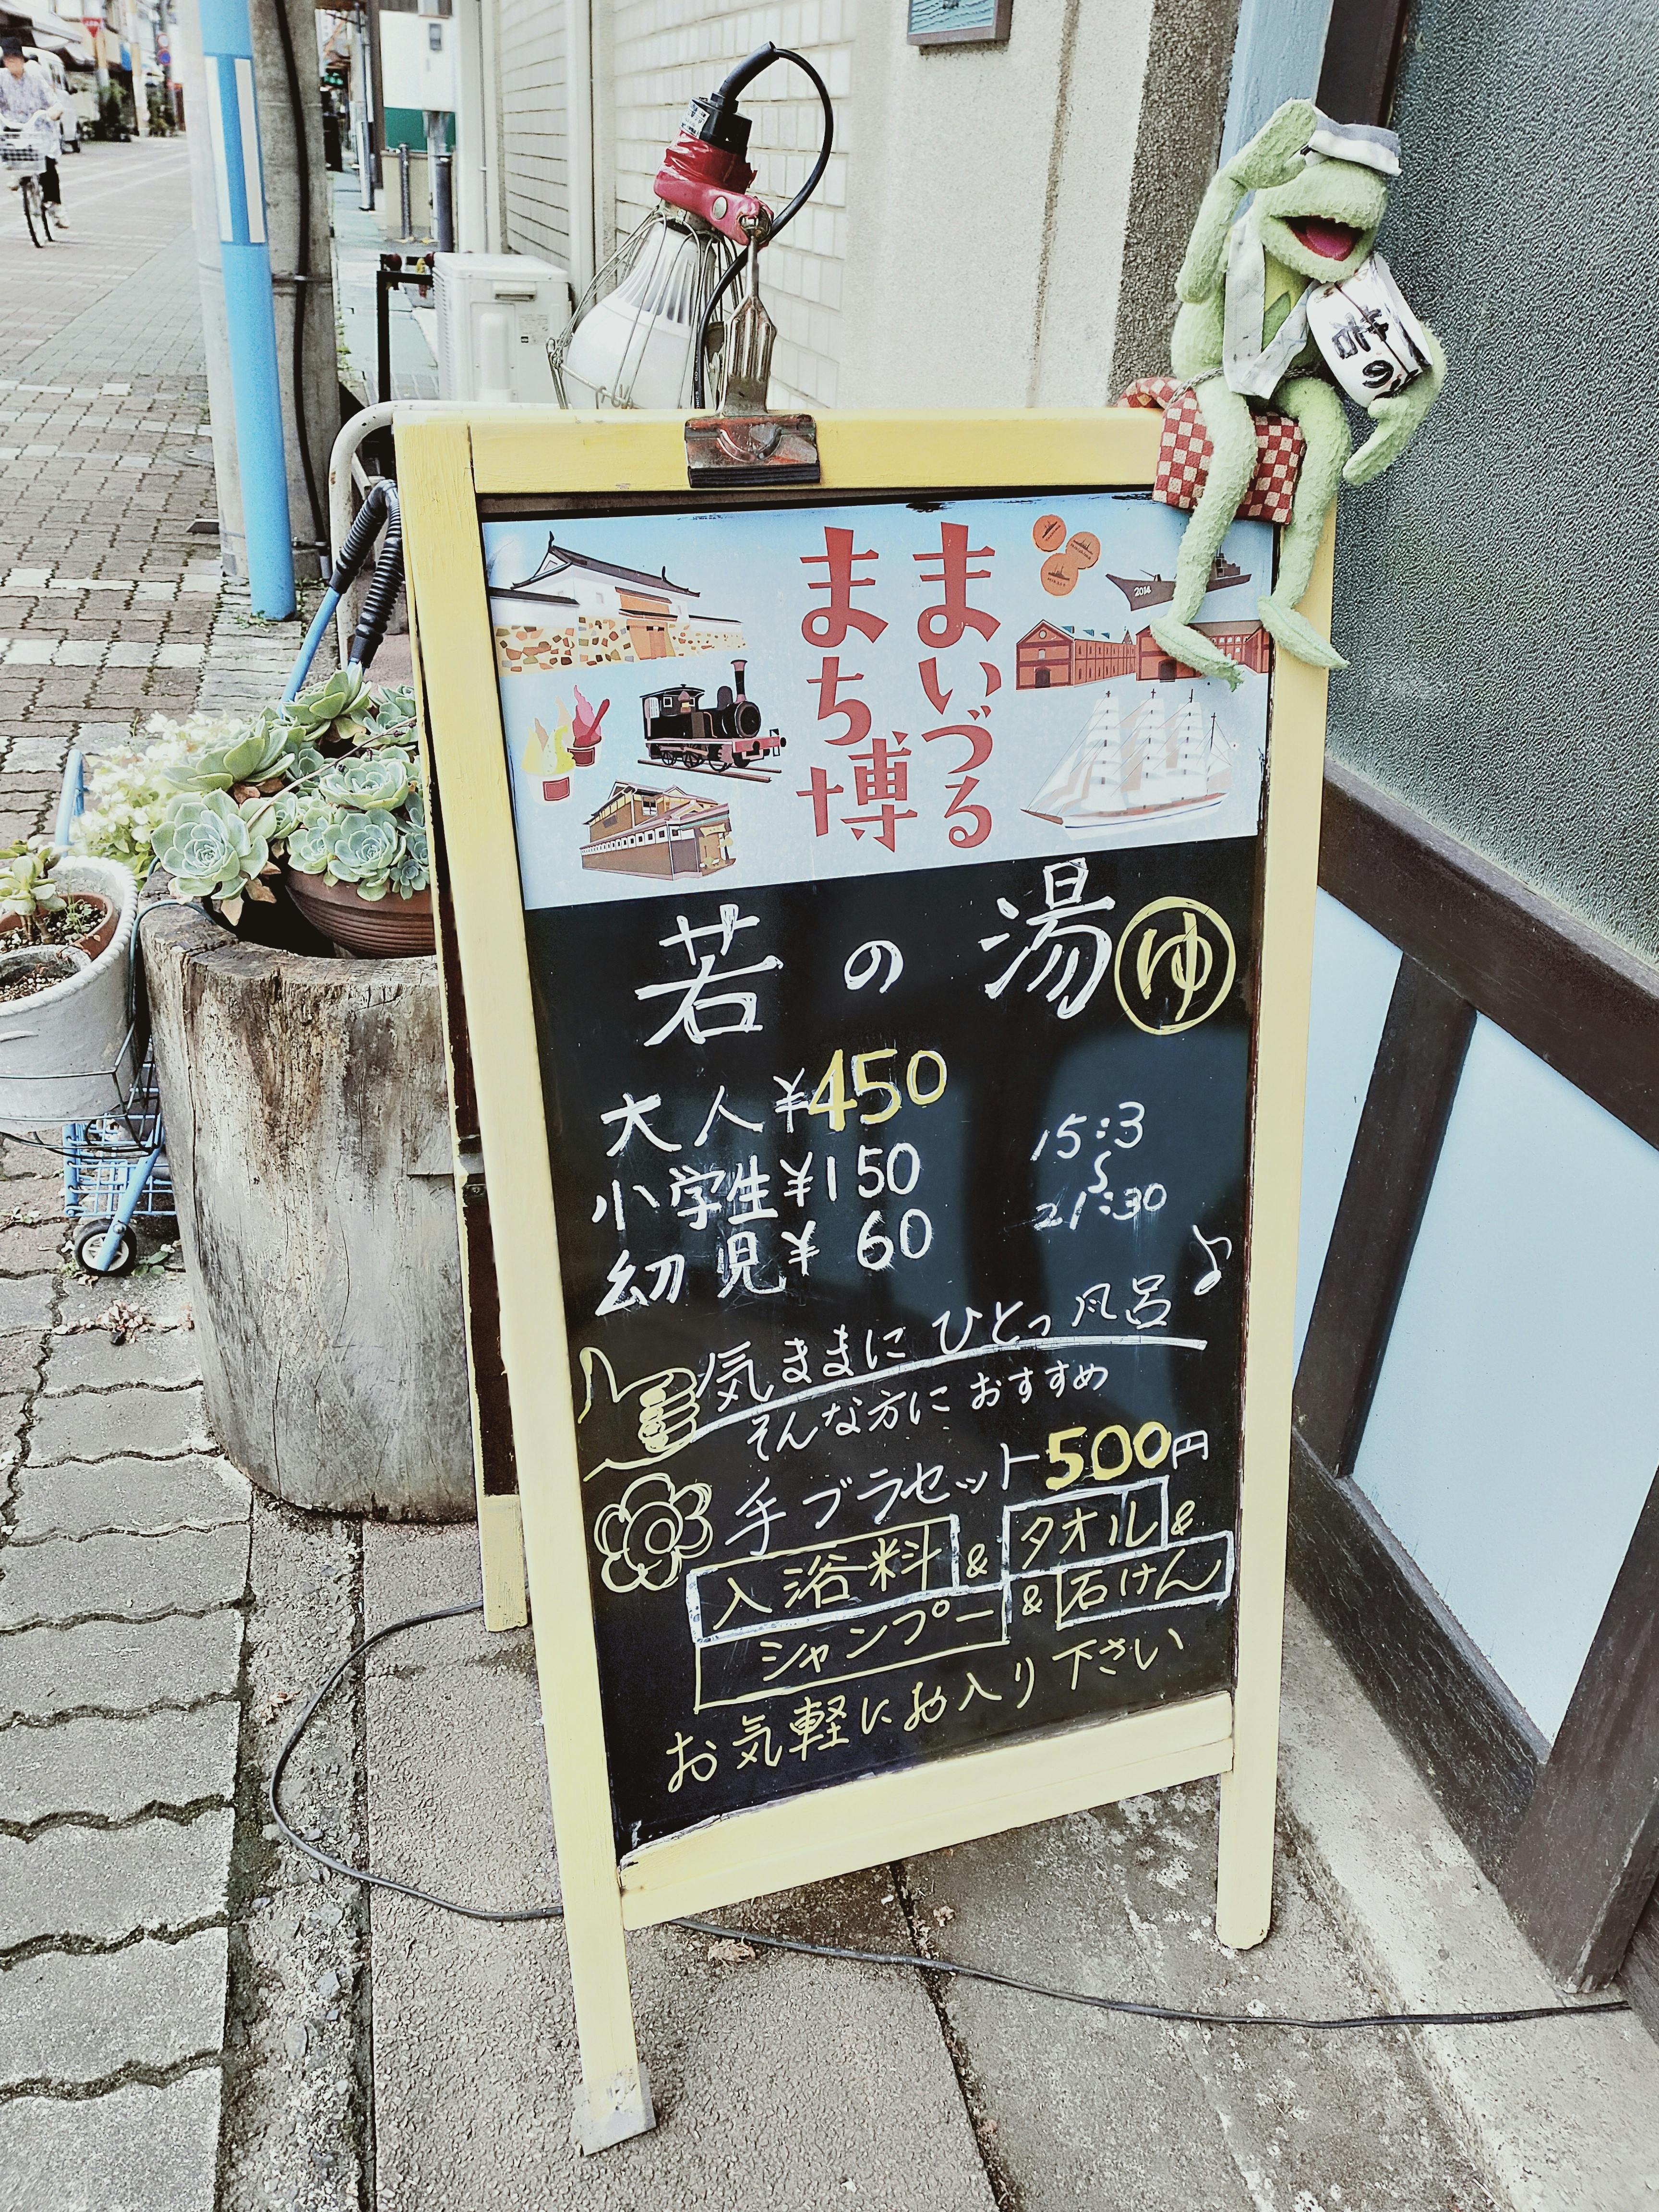 まいづる
まちまち博
2014
若の湯 ゆ
大人 ¥450
小学生 ¥150
幼児 ¥60
15:3
〜
21:30
気ままにひとっ風呂♪
そんな方におすすめ
手ブラセット500円
入浴料 & タオル &
シャンプー & 石けん
お気軽にお入り下さい
若の